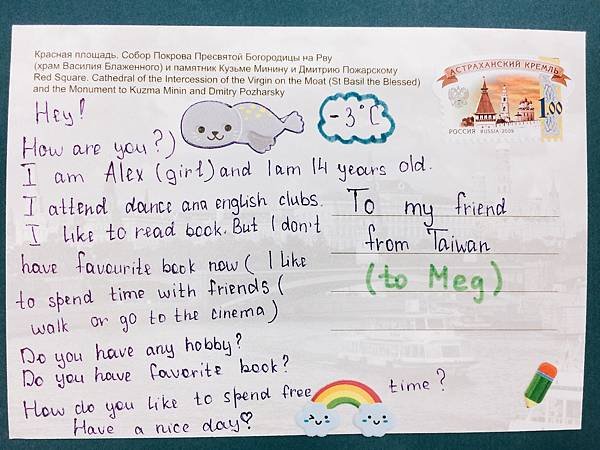 Красная площадь. Собор Покрова Пресвятой Богородицы на Рву
(храм Василия Блаженного) и памятник Кузьме Минину и Дмитрию Пожарскому
Red Square. Cathedral of the Intercession of the Virgin on the Moat (St Basil the Blessed)
and the Monument to Kuzma Minin and Dmitry Pozharsky
АСТРАХАНСКИЙ КРЕМЛЬ
1,00
РОССИЯ RUSSIA·2009
-3°C
Hey!
How are you?)
I am Alex (girl) and I am 14 years old.
I attend dance ana english clubs.
I like to read book. But I don't
have favourite book now( I like
to spend time with friends (
walk or go to the cinema)
Do you have any hobby?
Do you have favorite book?
How do you like to spend free time?
Have a nice day♡
To my friend
from Taiwan
(to Meg)